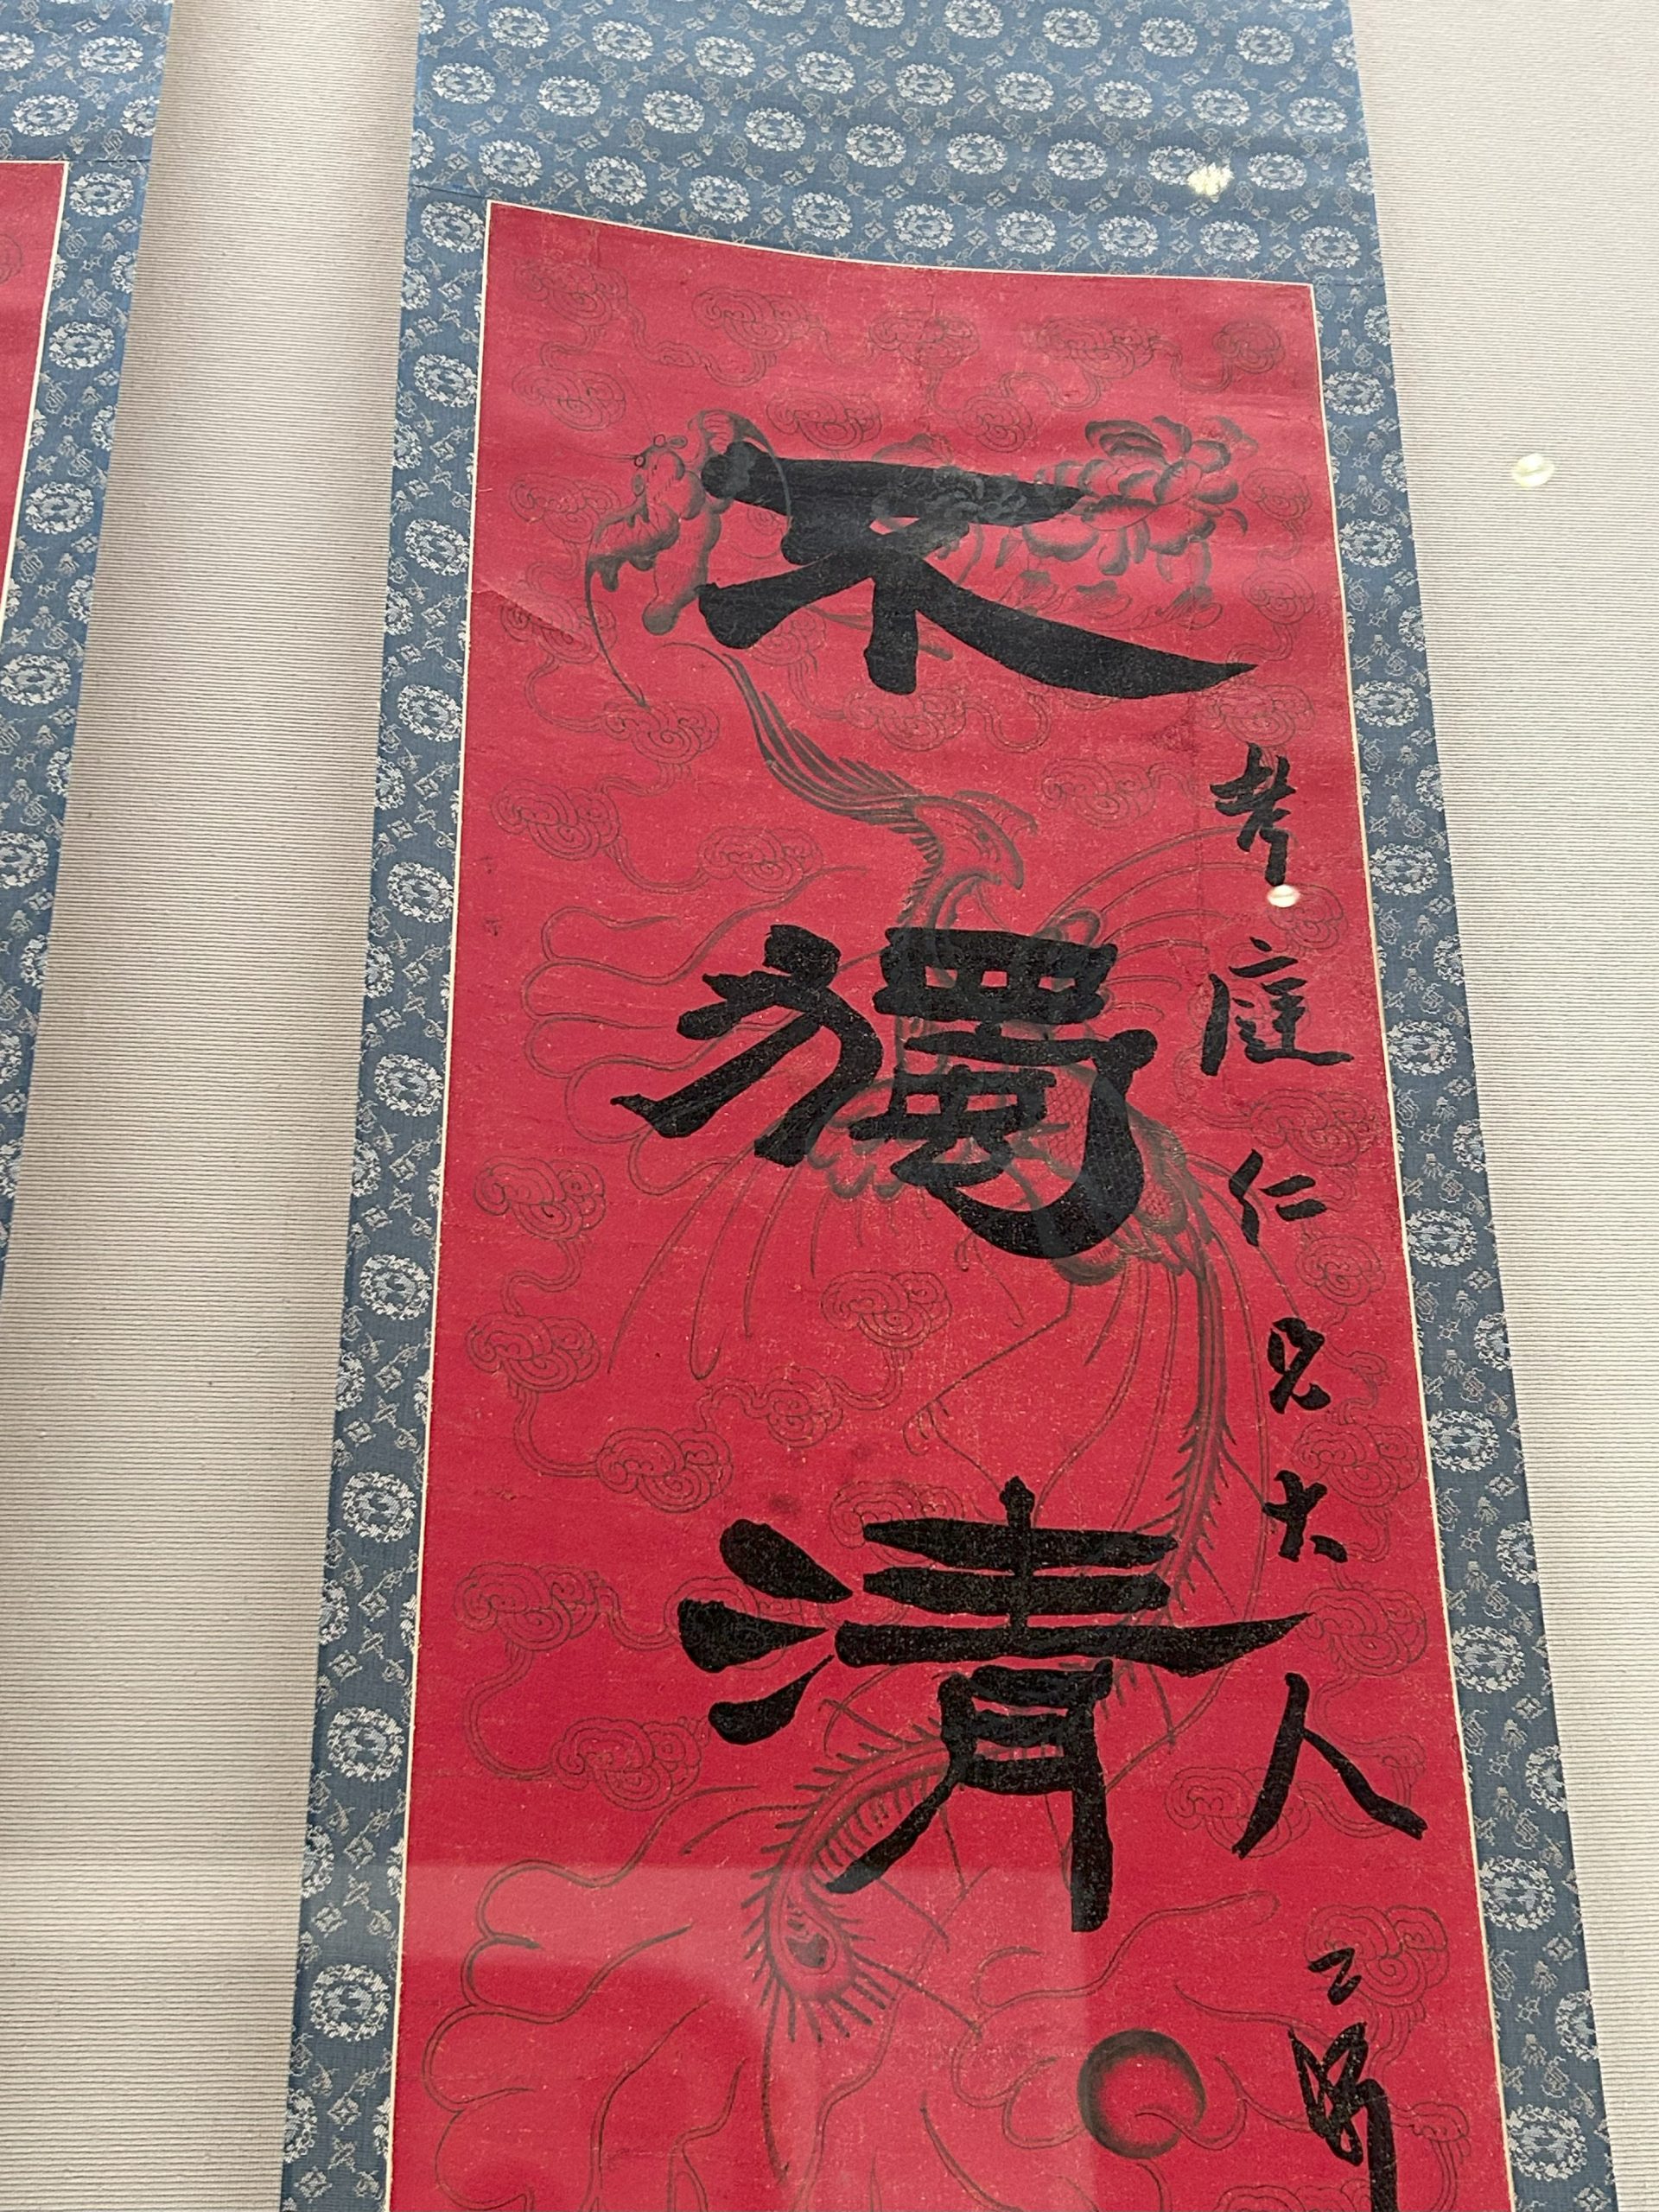 考庭仁兄大人
不獨清